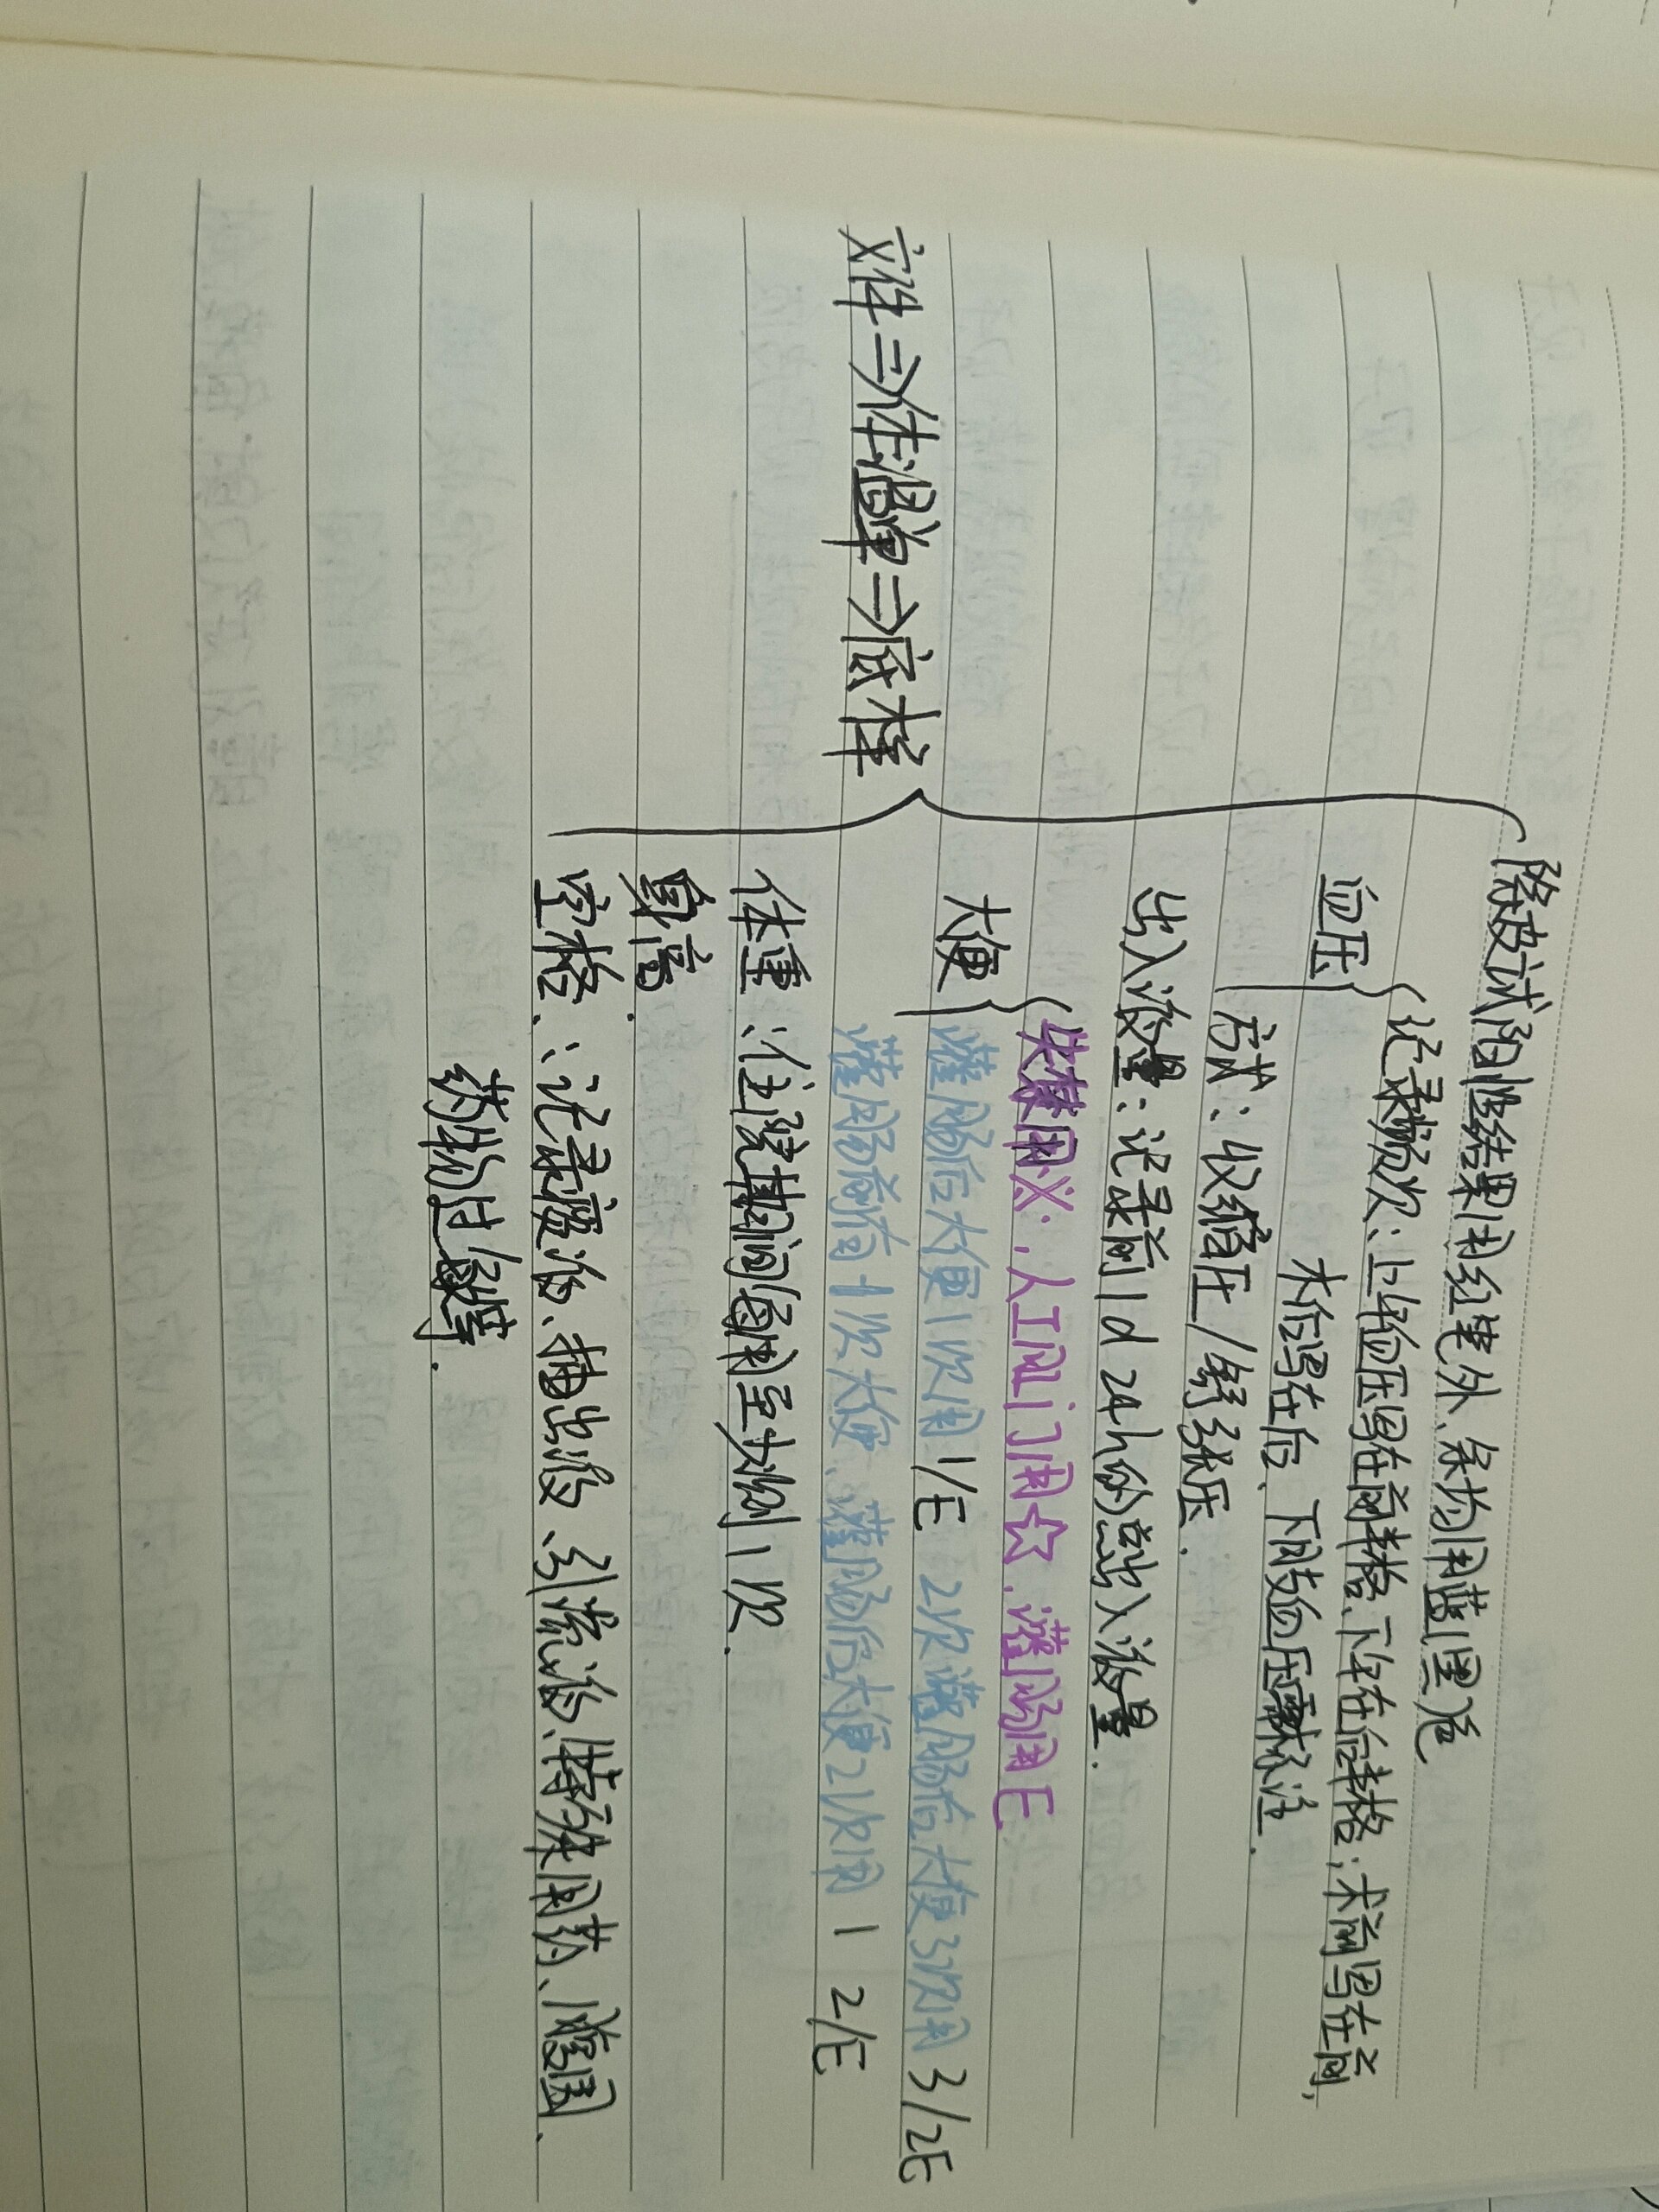 文件⇒体温单⇒底栏
除皮试阳性结果用红笔外、余均用蓝黑色
血压
记录频次:上午血压写在前半格、下午在后半格;术前写在前,
术后写在后、下肢血压需标注.
方式:收缩压/舒张压.
出入液量:记录前1d 24h的总出入液量.
大便
失禁用※,人工肛门用☆.灌肠用E
灌肠后大便1次用1/E 2次灌肠后大便3次用3/2E
灌肠前有1次大便、灌肠后大便2次用1 2/E
体重:住院期间每周至少测1次.
身高.
空格、:记录痰液、抽出液、引流液、特殊用药、腹围、
药物过敏等.